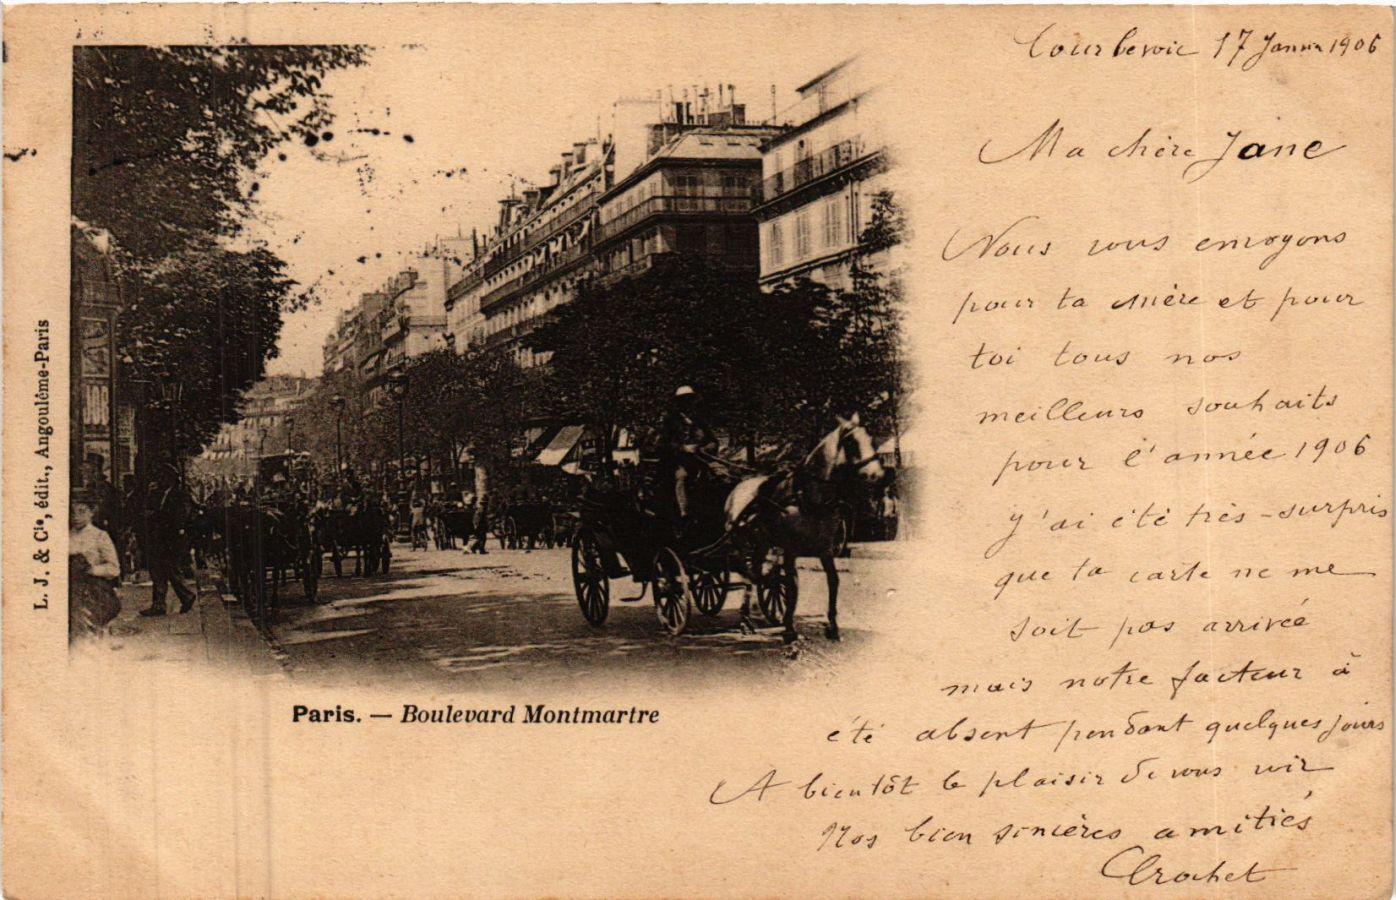 Courbevoie 17 Janvier 1906
Ma chère Jane
Nous vous envoyons
pour ta mère et pour
toi tous nos
meilleurs souhaits
pour l'année 1906
J'ai été très-surpris
que ta carte ne me
soit pas arrivée
mais notre facteur à
été absent pendant quelques jours
A bientôt le plaisir de vous voir
Nos bien sincères amitiés
Crochet
L. J. & Cie, édit., Angoulême-Paris
Paris. — Boulevard Montmartre